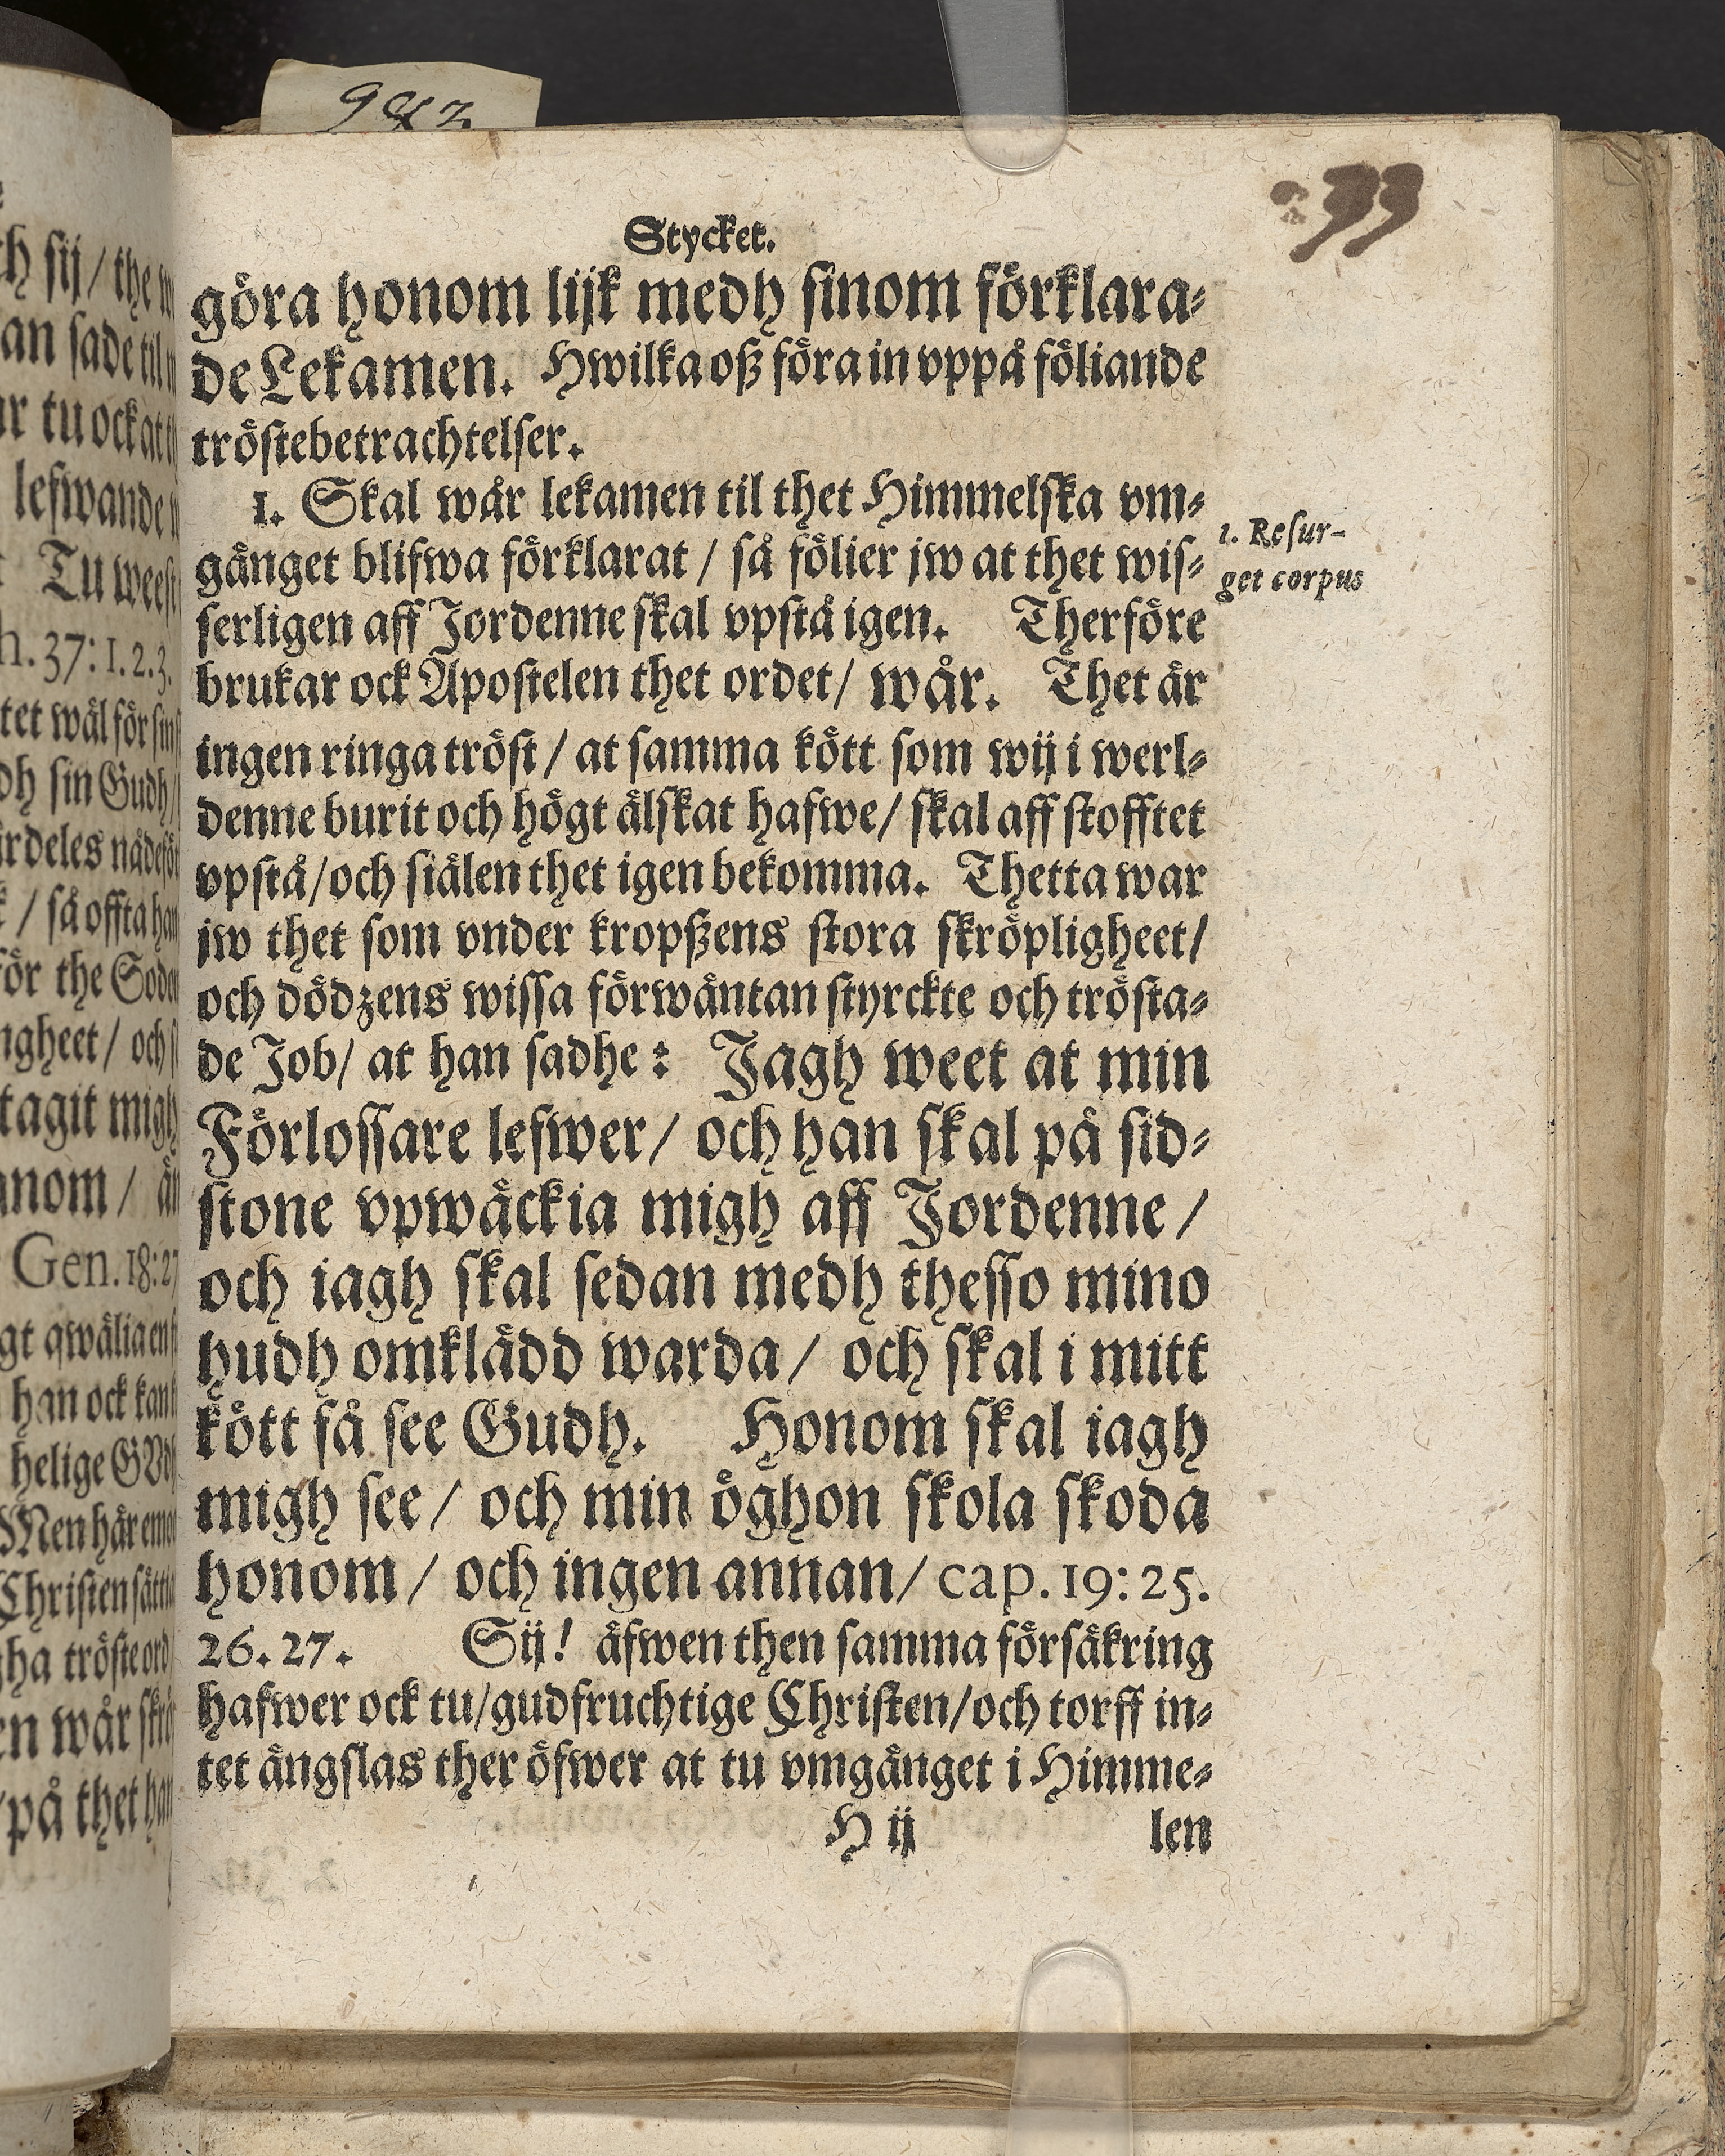 Stycket.
göra honom lijk medh sinom förklara-
de Lekamen. Hwilka oß föra in vppå föliande
tröstebetrachtelser.
1. Skal wår lekamen til thet Himmelska vm-
gänget blifwa förklarat / så fölier jw at thet wis-
serligen aff Jordenne skal vpstå igen. Therföre
brukar ock Apostelen thet ordet/ wår. Thet är
ingen ringa tröst / at samma kött som wij i werl-
denne burit och högt älskat hafwe/ skal aff stofftet
vpstå/och siälen thet igen bekomma. Thetta war
jw thet som vnder kropßens stora skröpligheet/
och dödzens wissa förwäntan styrckte och trösta-
de Job/ at han sadhe: Jagh weet at min
Förlossare lefwer/ och han skal på sid-
stone vpwäckia migh aff Jordenne /
och iagh skal sedan medh thesso mino
hudh omklädd warda / och skal i mitt
kött få see Gudh. Honom skal iagh
migh see / och min öghon skola skoda
honom / och ingen annan/ cap. 19: 25.
26. 27. Sij! äfwen then samma försäkring
hafwer ock tu/gudfruchtige Christen/och torff in-
tet ängslas ther öfwer at tu vmgänget i Himme-
H ij len
1. Resur-
get corpus
33
ch sij / the
an sade til
tu ock at
lefwande
Tu weest
37: 1. 2. 3.
tet wäl för
sin Gudh/
/ så offta
för the
ngheet / och
tagit migh
nom /
Gen. 18: 27
qwälia
han ock
helige
Men här
Christen
tröste ord
wår
på thet